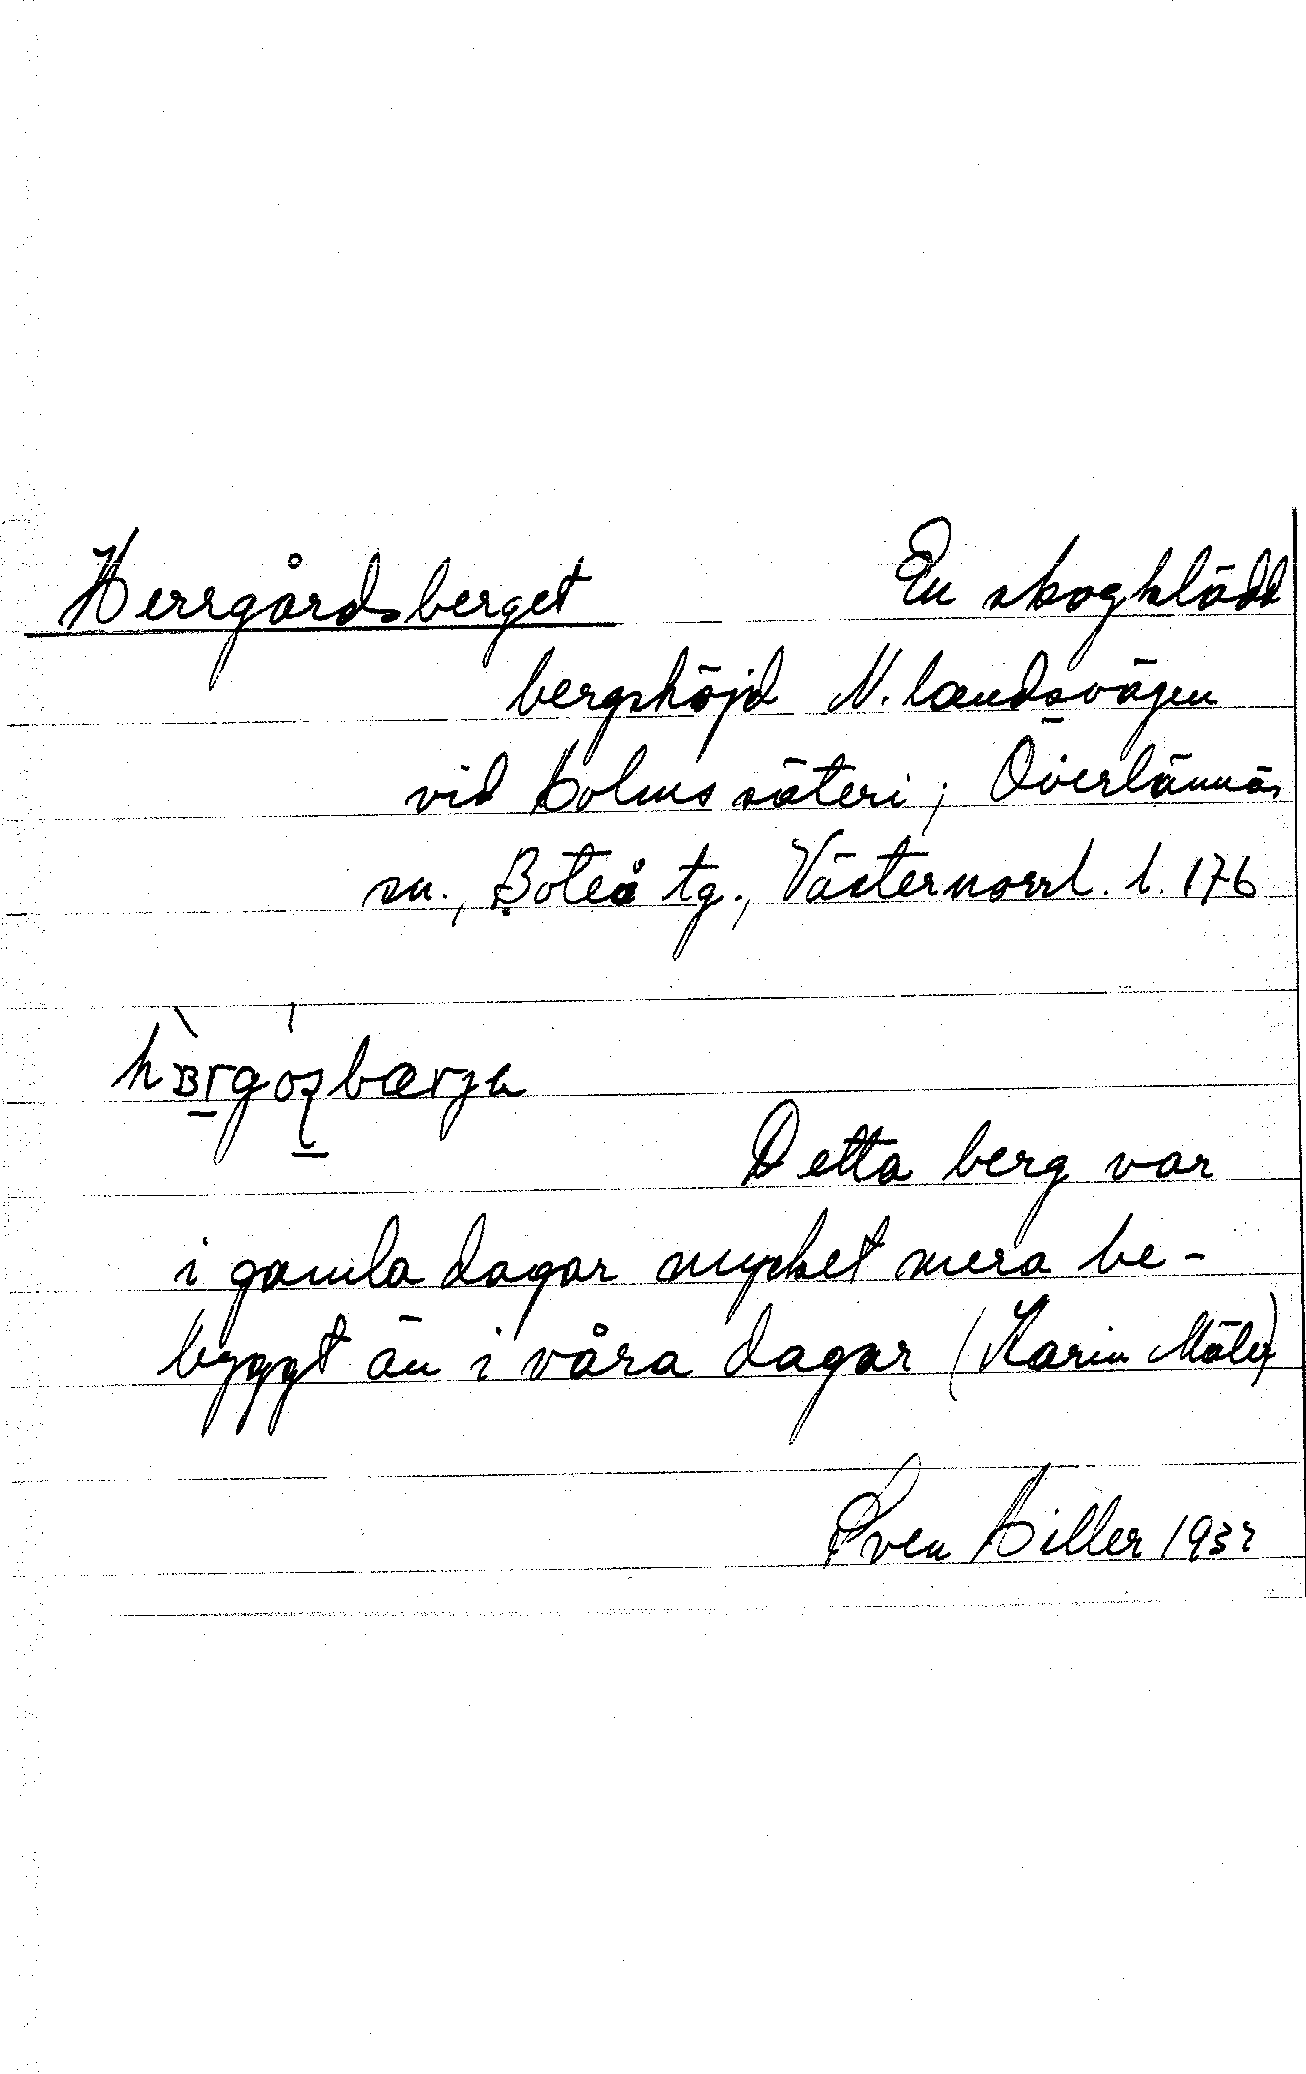 Herrgårdsberget En skogklädd
bergshöjd N. landsvägen
vid Holms säteri, Överlännäs
sn., Boteå tg., Västernorrl. l. 176
Detta berg var
i gamla dagar mycket mera be-
byggt än i våra dagar (Karin Mäler)
Sven Hiller 1932